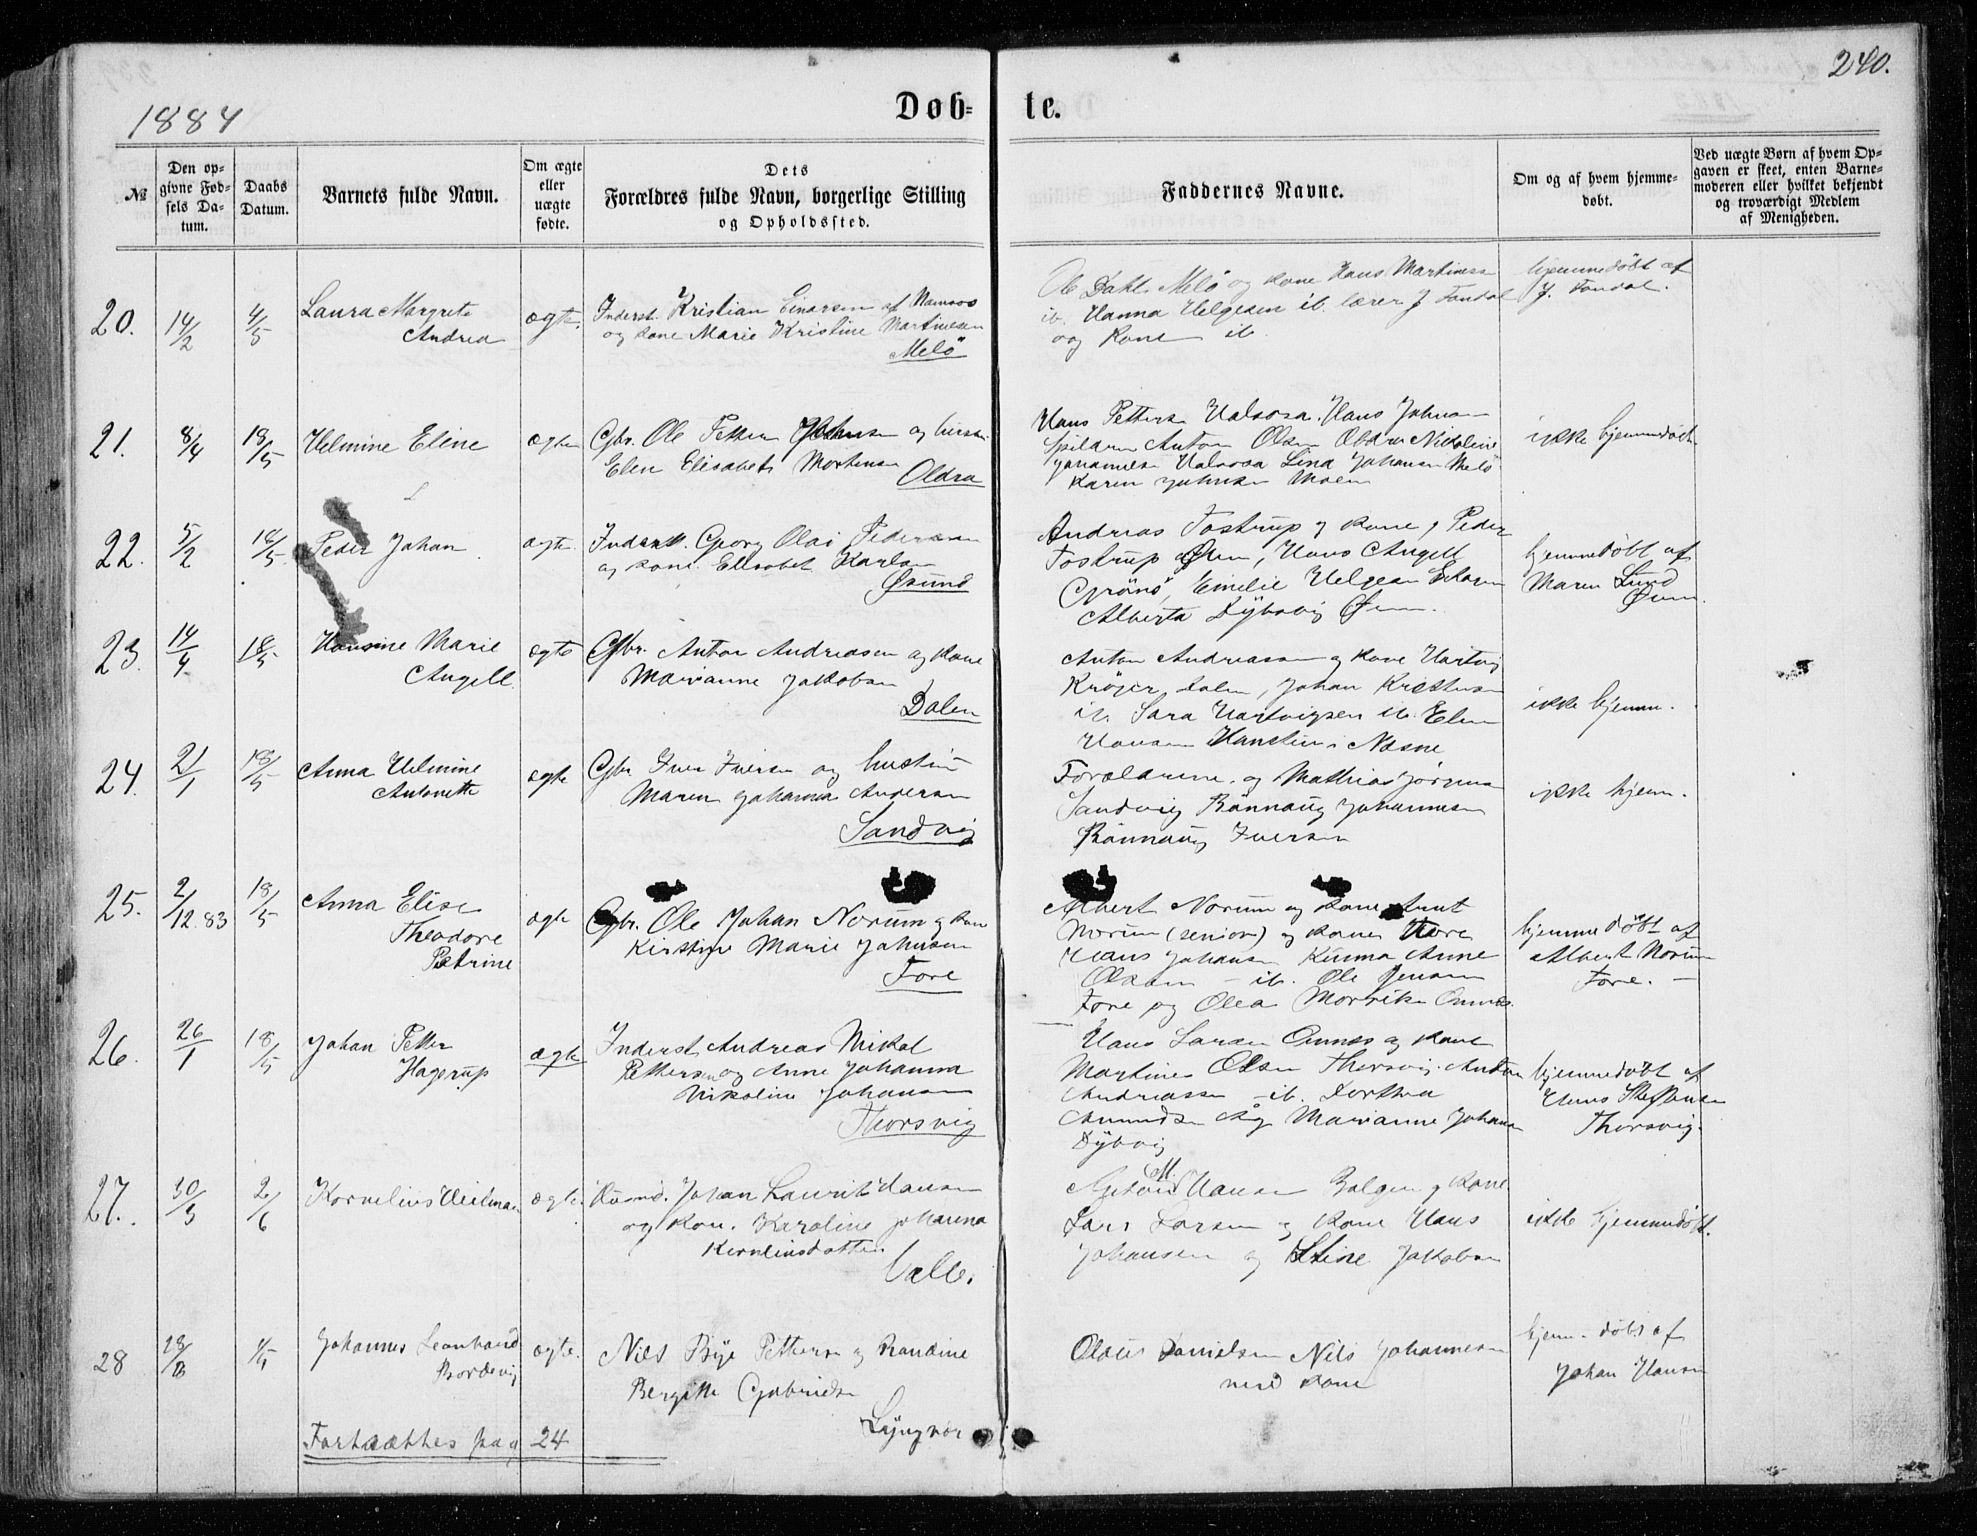 240.
1884
Døb-
te.
№
Den op-
givne Fød-
sels Da-
tum.
Daabs
Datum.
Barnets fulde Navn.
Om ægte
eller
uægte
fødte.
Dets
Forældres fulde Navn, borgerlige Stilling
og Opholdssted.
Faddernes Navne.
Om og af hvem hjemme-
døbt.
Ved uægte Børn af hvem Op-
gaven er skeet, enten Barne-
moderen eller hvilket bekjendt
og troværdigt Medlem
af Menigheden.
20.
14/2
4/5
Laura Margrete
Andrea
ægte.
Inderst. Kristian Einarsen af Namsos
og kone Marie Kristine Martinesen
Melö
Ole Dahl Melö og kone Hans Martinesen
ib. Hanna Helgesen ib. lærer J Fondal
og Kone ib.
hjemmedöbt af
J. Fondal.
21.
8/4
18/5
Helmine Eline
ægte
Gbr. Ole Petter Johnsen og hustru
Elen Elisabet Mortensen
Oldra
Hans Pettersen Halsosa. Hans Johnsen
Spildra Anton Olsen Oldra Nikoline
Halsosa Lina Johansen Melö
Karen Johnsen Moen
ikke hjemmedöbt
22.
5/2
18/5
Peder Johan
ægte.
Inderst. Georg Olai Pedersen
og kone. Elisabet Karlsen
Øsund
Andreas Tostrup og kone, Peder
Tostrup Øren, Hans Angell
Grönö, Emilie Helgesen
Alberta Dybvig
hjemmedöbt af
Maren Lund
23.
14/4
18/5
Hansine Marie
Angell.
ægte
Gbr. Anton Andreasen og kone
Marianne Jakobsen
Dalen
Anton Andreassen og kone Hartvig
Kröger Dalen, Johan Kristensen
ib. Sara Hartvigsen ib. Elen
Hansen Hanstein i Næsne
ikke hjemm.
24.
21/1
18/5
Anna Helmine
Antonette
ægte
Gbr Iver Iversen og hustru
Maren Johanna Andersen
Sandvig
Forældrene. og Mathias Jörgensen
Sandvig Rönnaug Johannesen
Rönnaug Iversen
ikke hjem.
25.
2/12.83
18/5
Anna Elise
Theodore
Petrine
ægte
Gbr. Ole Johan Norum og kone
Kirstine Marie Johnsen
Fore
Albert Norum og kone Arnt
Norum (senior) og kone Fore
Hans Johansen Kunna Anne
Olsen - ib. Ole Jensen
Fore og Olea Morvika Ornes.
hjemmedöbt af
Albert Norum
Fore. -
26.
26/1
18/5
Johan Petter
Hagerup
ægte
Inderst. Andreas Mikal
Pettersen og Anne Johanna
Nikoline Johansen
Thorsvig
Hans Larsen Ornes og kone
Martines Olsen Thorsvig. Anton
Andreassen ib. Dorthea
Amundsen Aag Marianne Johansen
Dybvig
hjemmedöbt af
Hans Steffensen
Thorsvig.
27.
30/3
2/6
Kornelius Veilman
ægte.
Husmd. Johan Laurits Hansen
og kone. Karoline Johanna
Kornelinsdatter.
Valle.
Anton M. Hansen Bolgen og kone
Lars Larsen og kone Hans
Johansen og Stine Jakobsen
ikke hjemmedöbt.
28
Johannes Leonhard
Bordevig
ægte.
Nils Bye Petterse og Randine
Bergitte Gabrielsen
Lyngvær
Olaus Danielsen Nils Johannesen
med kone
hjem-döbt af
Johan Hansen
Fortsættes pag 24